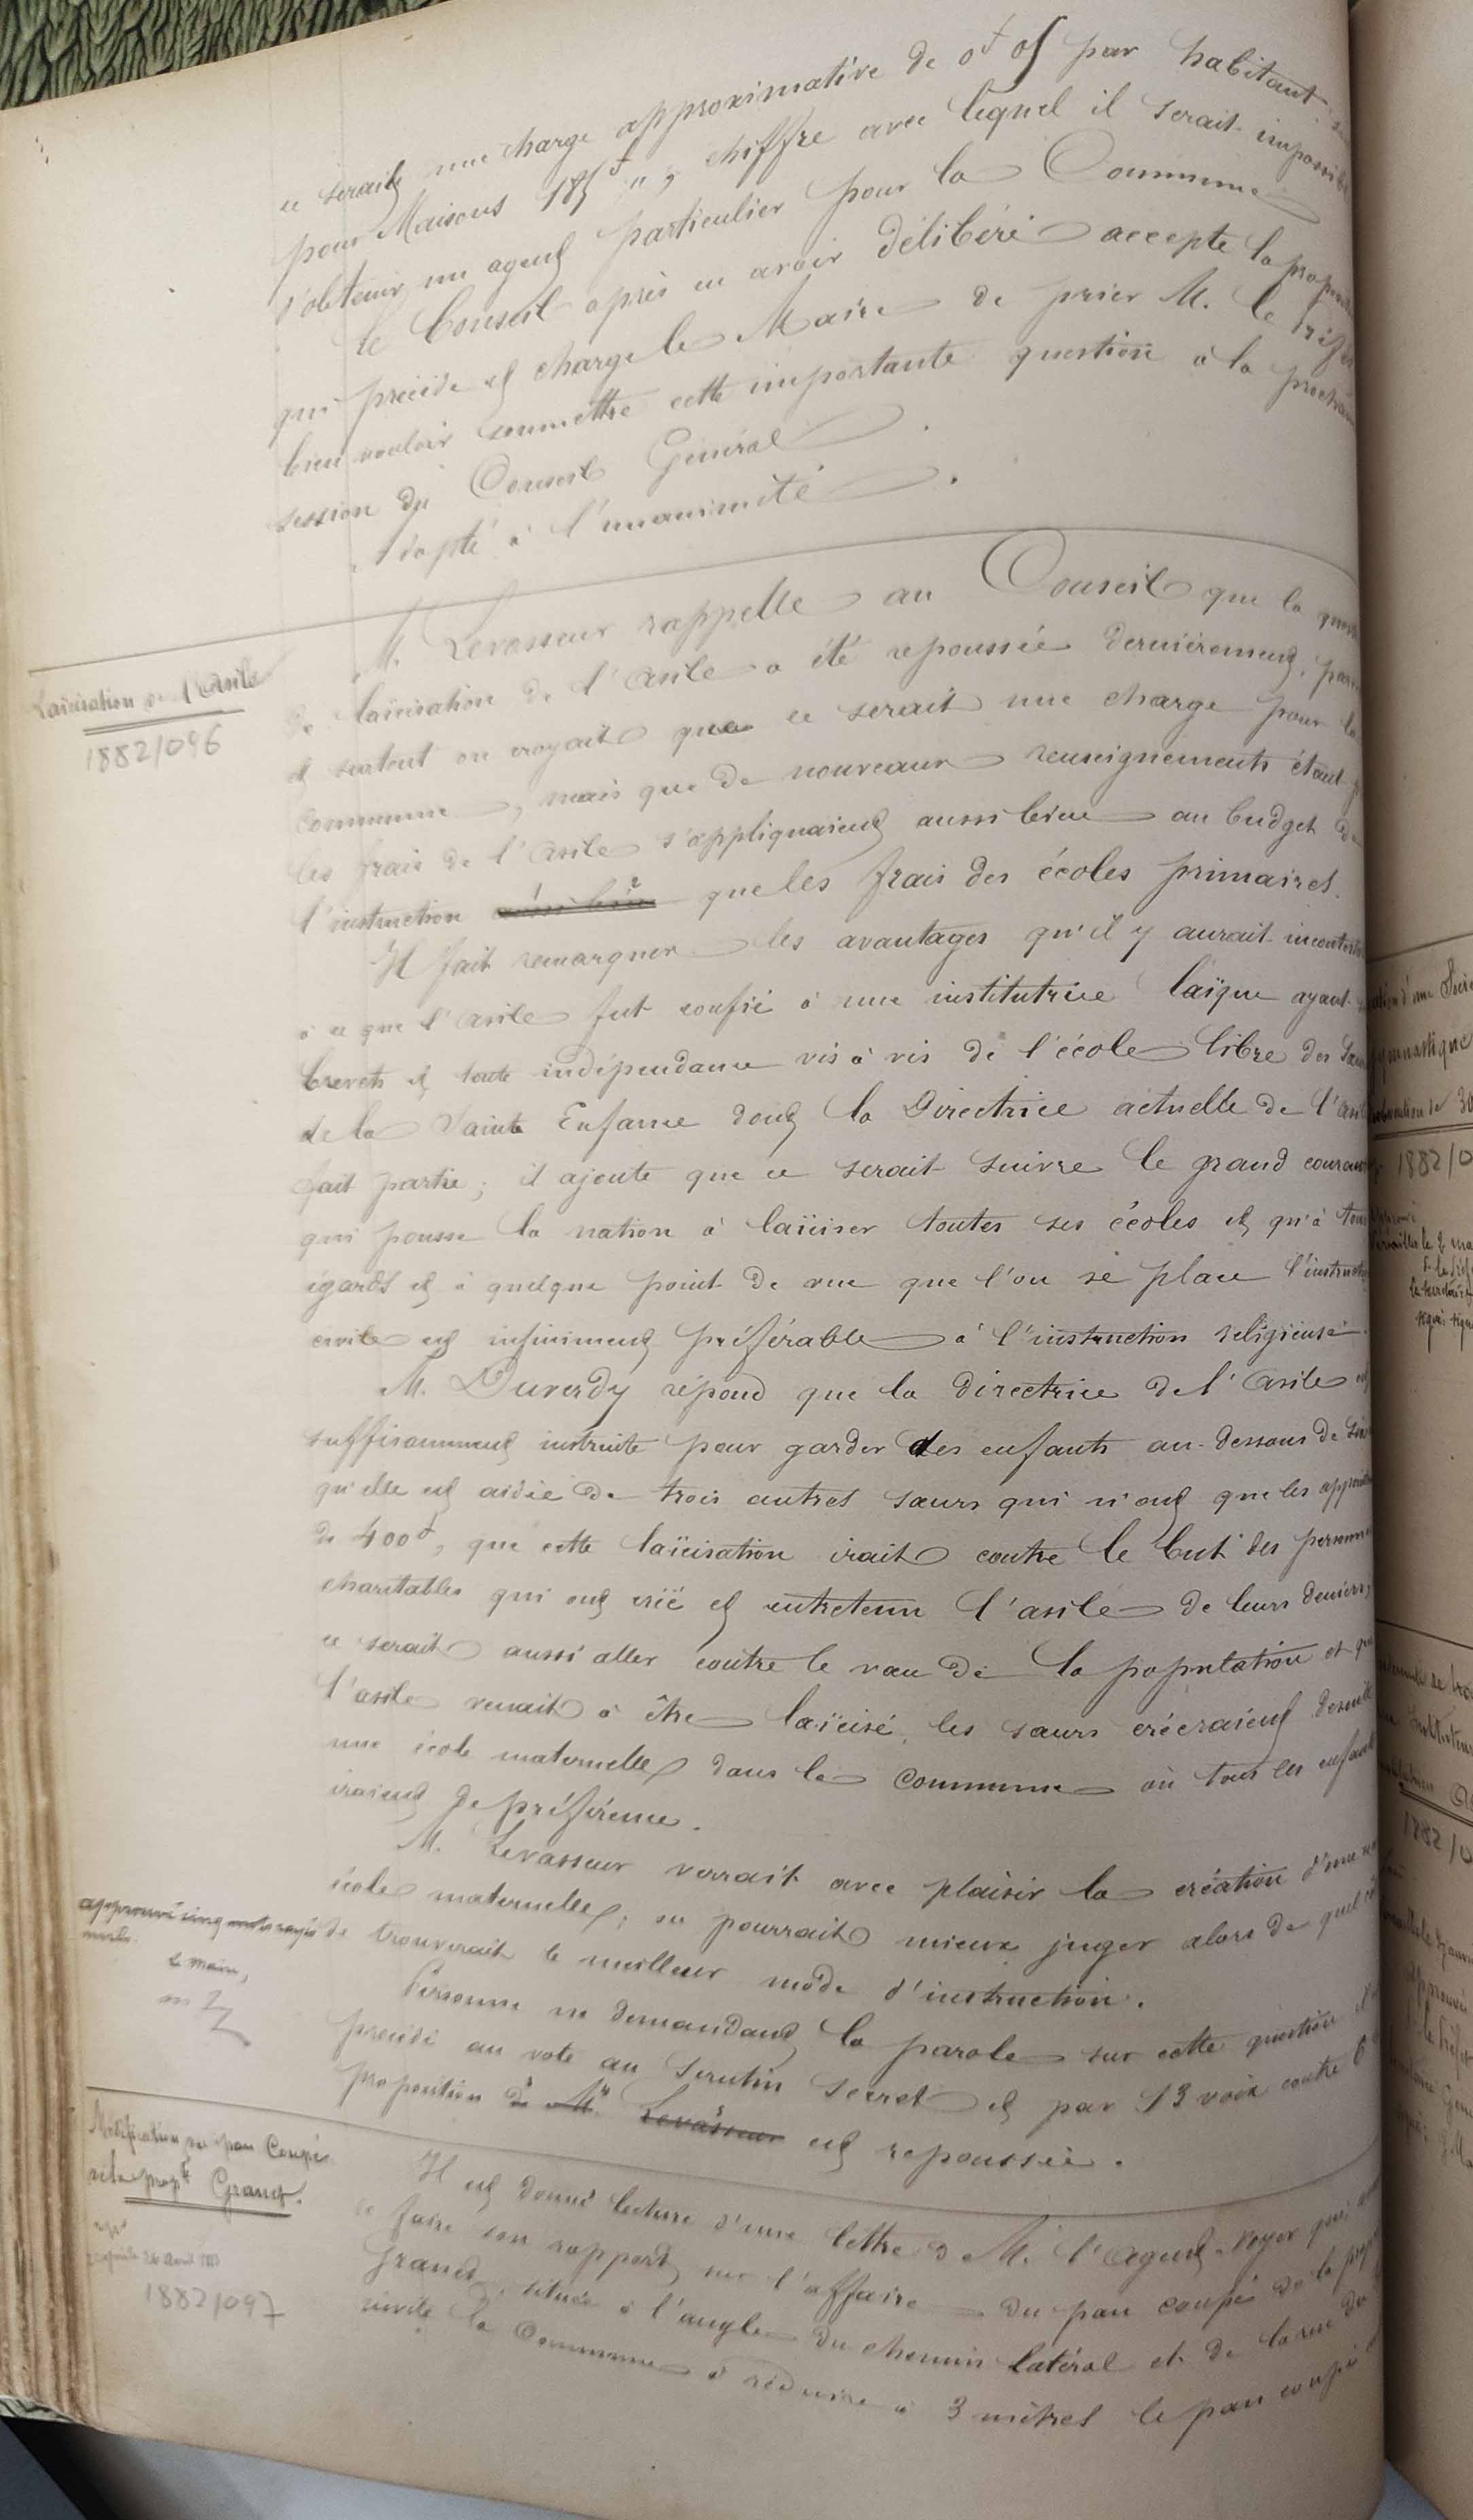 ce serait une charge approximative de 0f 05 par habitant
pour Maisons 185f ", chiffre avec lequel il serait impossible
d'obtenir un agent particulier pour la Commune
Le Conseil après en avoir délibéré accepte la
qui précède et charge le Maire de prier M. le Préfet
bien vouloir soumettre cette importante question à la
session du Conseil Général.
Adopté à l'unanimité.
M. Levasseur rappelle au Conseil que la
Laïcisation de l'Asile
de laïcisation de l'Asile a été repoussée dernièrement,
1882/096
et surtout on croyait que ce serait une charge pour la
Commune, mais que de nouveaux renseignements étant
les frais de l'Asile s'appliquaient aussi bien au budget de
l'instruction aussi bien que les frais des écoles primaires.
Il fait remarquer les avantages qu'il y aurait
à ce que l'Asile fut confié à une institutrice laïque ayant
brevets et toute indépendance vis à vis de l'école libre des
de la Sainte Enfance dont la Directrice actuelle de l'asile
fait partie; il ajoute que ce serait suivre le grand courant
qui pousse la nation à laïciser toutes ses écoles et qu'à tous
égards et à quelque point de vue que l'on se place l'instruction
civile est infiniment préférable à l'instruction religieuse.
M. Duverdy répond que la directrice de l'Asile est
suffisamment instruite pour garder des enfants au-dessous de
qu'elle est aidée de trois autres sœurs qui n'ont que les
de 400f, que cette laïcisation irait contre le but des personnes
charitables qui ont créé et entretenu l'asile de leurs deniers,
ce serait aussi aller contre le vœu de la population et que
l'asile venait à être laïcisé, les sœurs créeraient de suite
une école maternelle dans la Commune où tous les enfants
iraient de préférence.
M. Levasseur verrait avec plaisir la création d'une
école maternelle; on pourrait mieux juger alors de quel côté
approuvé cinq mots rayés
nuls.
se trouverait le meilleur mode d'instruction.
Le Maire,
Personne ne demandant la parole sur cette question il
procédé au vote au scrutin secret et par 13 voix contre 6
proposition de M. Levasseur est repoussée.
Modification du pan Coupé
de la propté Granet.
Il est donné lecture d'une lettre de M. l'Agent-Voyer qui,
de faire son rapport sur l'affaire du pan coupé de la
Granet, située à l'angle du chemin latéral et de la rue du
1882/097
invite la Commune à réduire à 3 mètres le pan coupé
1882/0
1882/0